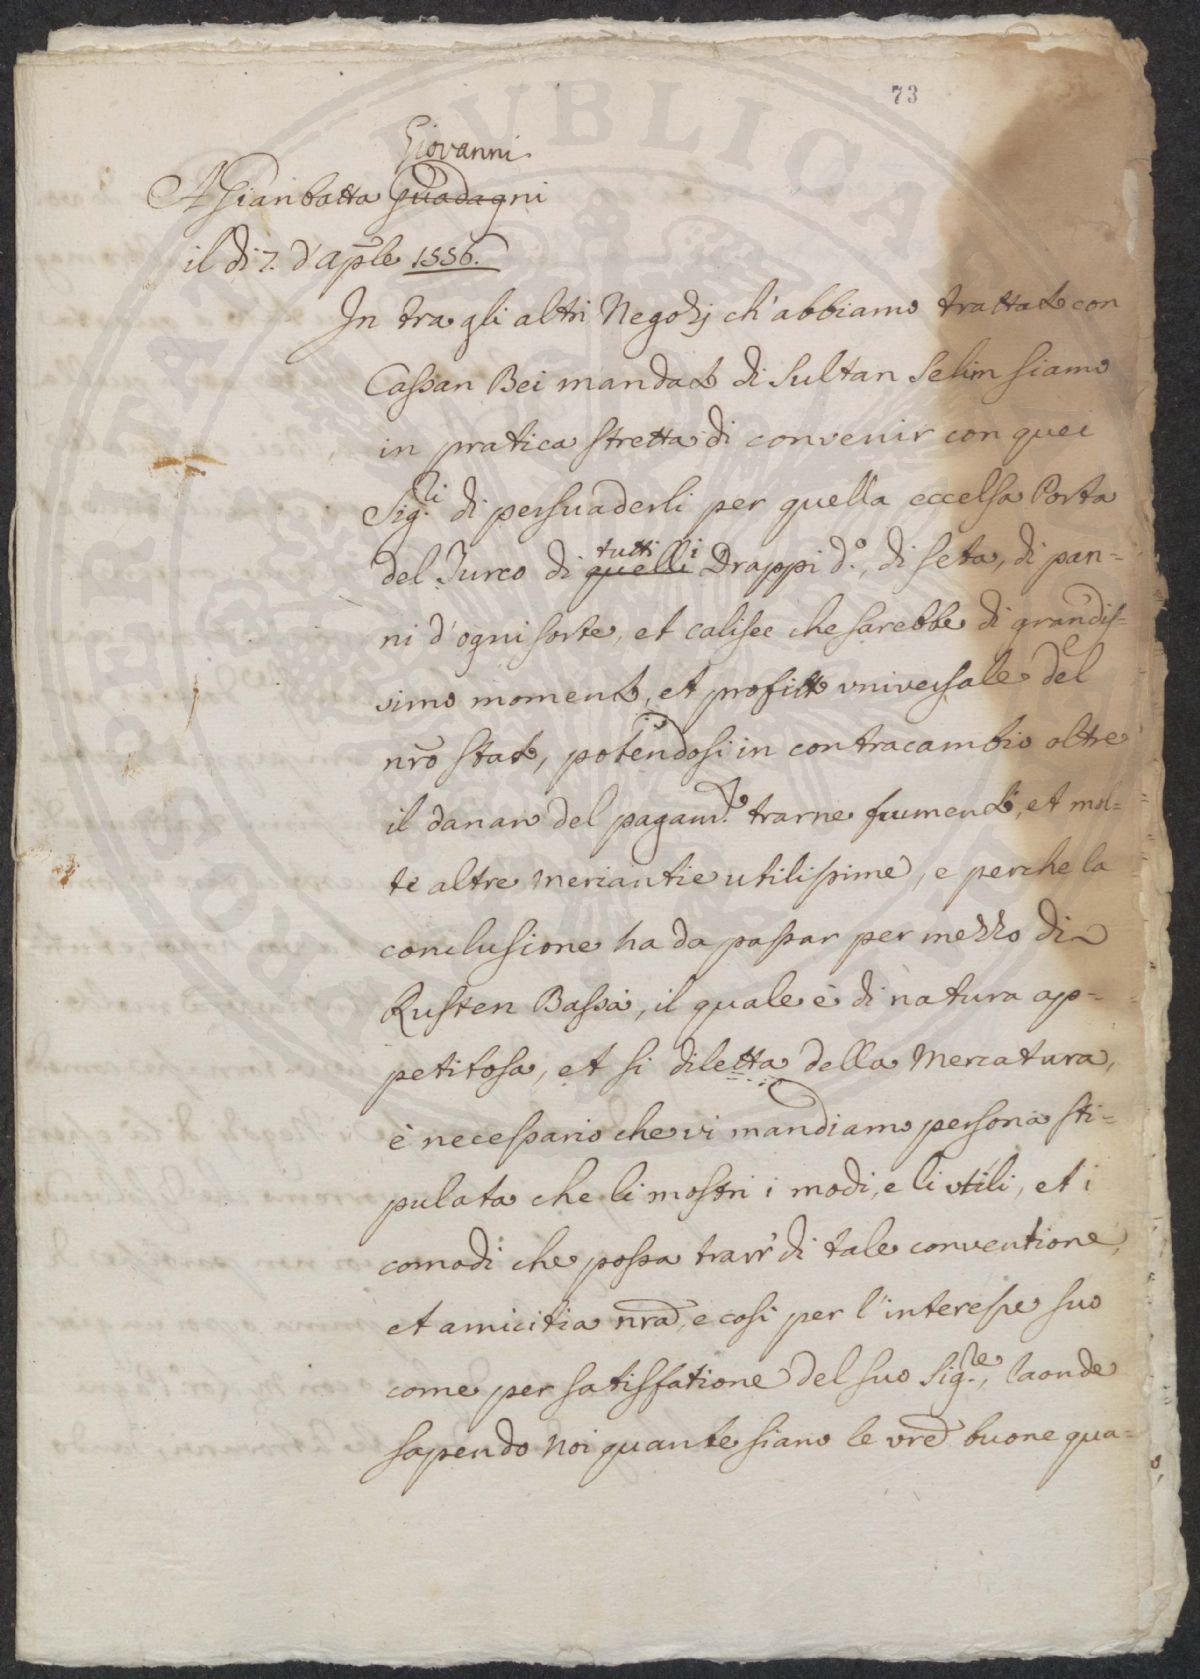 73
Giovanni
A Gianbatta Guadagni
il di 7. d'Aple 1556.
In tra gli altri Negozj ch'abbiamo trattato con
Cassan Bei mandato di Sultan Selim siamo
in pratica stretta di convenir con quei
Sig.ri di persuaderli per quella eccelsa Porta
del Turco di quelli tutti i Drappi d.o, di seta, di pan=
ni d'ogni sorte, et calisee che sarebbe di grandis=
simo momento, et profitto universale del
nro Stato, potendosi in contracambio oltre
il danaro del pagam.to trarne frumenti, et mol=
te altre meriantie utilissime, e perche la
conclusione ha da passar per mezzo di
Rusten Bassà, il quale è di natura ap=
petitosa, et si diletta della Mercatura,
è necessario che vi mandiamo persona sti=
pulata che li mostri i modi, e li utili, et i
comodi che possa trarr' di tale conventione,
et amicitia nra, e cosi per l'interesse suo
come per satisfatione del suo Sig.re, laonde
sapendo Noi quante siano le vre buone qua=